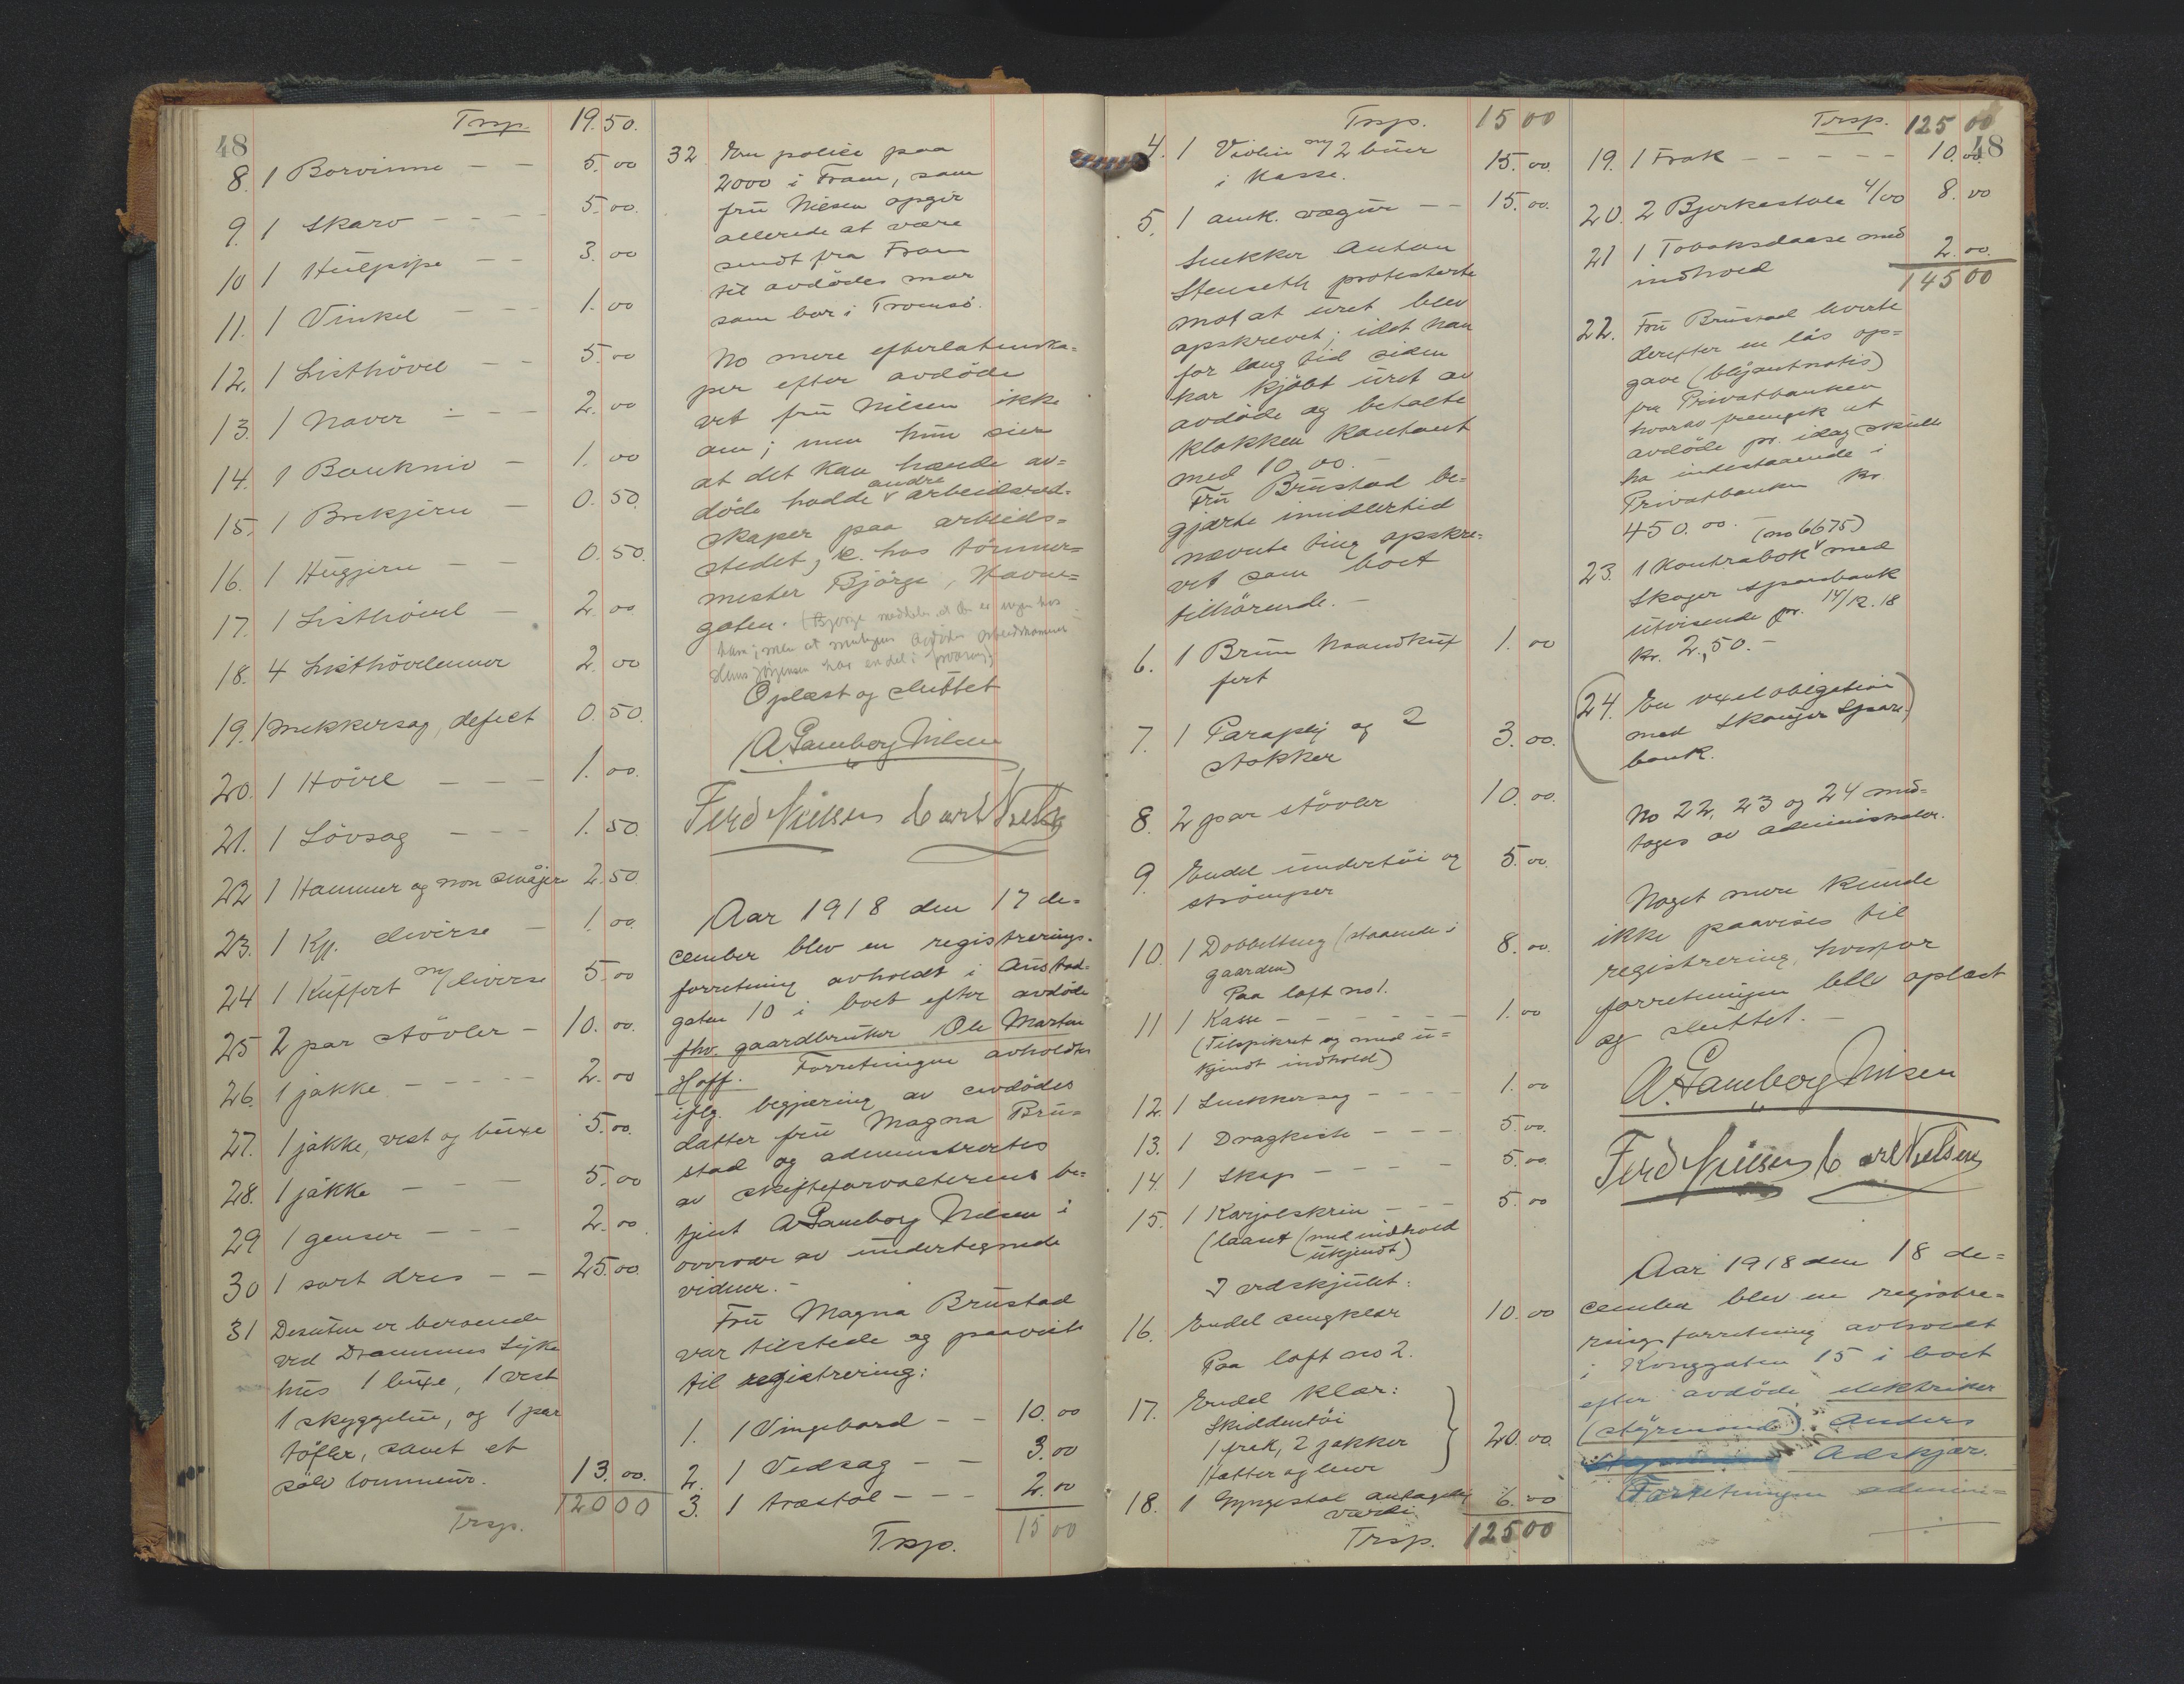 48
Trsp. 19.50.
8. 1 Borvinne - - 5.00
9. 1 Skarv - - - - 5.00.
10 1 Hulpipe - - 3.00
11. 1 Vinkel - - - 1.00
12. 1 Listhövel - - 5.00
13. 1 Naver - - - 2.00
14. 1 Baukniv - 1.00
15. 1 Brekjern - 0.50.
16. 1 Hugjern - - 0.50.
17. 1 Listhövel - 2.00
18. 4 Listhövlenner 2.00
19. 1 snekkersag, defect 0.50.
20. 1 Hövel - - - 1.00.
21. 1 Lövsag - - - 1.50
22 1 Hammer og non småjern 2.50
23. 1 Kp. diverse - 1.00
24 1 Kuffert m/ diverse 5.00
25 2 par stövler - 10.00.
26. 1 jakke - - - - - 2.00
27. 1 jakke, vest og buxe 5.00.
28. 1 jakke - - - 5.00
29 1 genser - - - 2.00
30 1 sort dres - - 25.00.
31 Desuten er beroende
ved Drammens Syke
hus 1 buxe, 1 vest
1 skyggelue, og 1 par
töfler, samt et
sölv lommeur. 13.00.
Trsp. 120 00
32 En police paa
2000 i Fram, som
fru Nielsen opgir
allerede at være
sendt fra Fram
til avdödes mor
som bor i Tromsö.
No mere efterlatenska-
per efter avdöde
vet fru Nilsen ikke
om; men hun sier
at det kan hænde av-
döde hadde andre arbeidsred-
skaper paa arbeids-
stedet, d.e. hos tömmer-
mester Bjørge, Havne-
gaten. (Bjørge meddeler at der er ingen hos
ham; men at muligens avdödes arbeidskamerat
Hans Jørgensen har endel i forvaring)
Oplæst og sluttet
A. Lamborg Nilsen
Ferd Nielsen Carl Nielsen
Aar 1918 den 17 de-
cember blev en registrerings-
forretning avholdt i Austad-
gaten 10 i boet efter avdöde
fhv. gaardbruker Ole Martin
Hoff. Forretningen avholdtes
iflg. begjæring av avdödes
datter fru Magna Bru-
stad og administrertes
av skifteforvalterens be-
tjent A Lamborg Nilsen i
overvær av undertegnede
vidner.-
Fru Magna Brustad
var tilstede og paaviste
til registrering:
1. 1 Vingebord - - 10.00
2. 1 Vedsag - - 3.00
3. 1 træstol - - - 2.00
Trsp. 15 00
Trsp. 15 00
4. 1 Violin m/ 2 buer
i kasse. 15.00.
5. 1 amk. vægur - - 15.00.
Snekker Anton
Stenseth protesterte
mot at uret blev
opskrevet; idet han
for lang tid siden
har kjöbt uret av
avdöde og betalte
klokken kontant
med 10.00.-
Fru Brustad be-
gjærte imidlertid
nævnte ting opskre-
vet som boet
tilhörende.-
6. 1 Brun haandkuf 1.00
fert
7. 1 Paraply og 2
stokker 3.00.
8. 2 par stövler 10.00.
9. Endel undertöi og 5.00.
strömper
10. 1 Dobbeltseng (staaende i 8.00.
gaarden)
Paa loft no 1.
11 1 Kasse - - - - - - 1.00
(Tilspikret og med u-
kjendt indhold)
12. 1 Snekkersag - - - - 1.00
13. 1 Dragkiste - - - 5.00.
14. 1 Skap - - - - - 5.00.
15. 1 Karjolskrin - - - 5.00
(laaset (med indhold
ukjendt)
I vedskjulet:
16. Endel sengklær 10.00
Paa loft no 2.
17. Endel klær:
Skiddentöi
1 frak, 2 jakker 20.00.
Hatter og luer
18. 1 Gyngestol antagelig 6.00
værdi
Trsp. 125 00
48
Trsp. 125 00
19. 1 Frak - - - - - 10.00.
20. 2 Bjerkestole 4/00 8.00
21 1 Tobaksdaase med
indhold 2.00.
145 00
22. Fru Brustad leverte
derefter en lås op-
gave (blyantnotis)
fra Privatbanken
hvorav fremgik at
avdöde pr. idag skulle
ha indestaaende i
Privatbanken kr
450.00.-
23. 1 Kontrabok (no 6675) med
Skoger Sparebank
utvisende pr. 14/12.18
kr. 2,50.-
(24. En vexelobligation
med Skoger Spare-)
bank.
No 22, 23 og 24 med-
tages av administrator.
Noget mere kunde
ikke paavises til
registrering, hvorfor
forretningen blev oplæst
og sluttet.-
A. Lamborg Nilsen
Ferd Nielsen Carl Nielsen
Aar 1918 den 18 de-
cember blev en registre-
ringsforretning avholdt
i Konggaten 15 i boet
efter avdöde elektriker
(styrmand) Anders
Adskjær.
Forretningen admini-